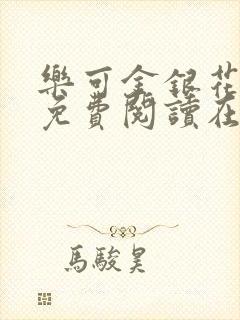 樂可金銀花
免費閱讀在
馬駿昊